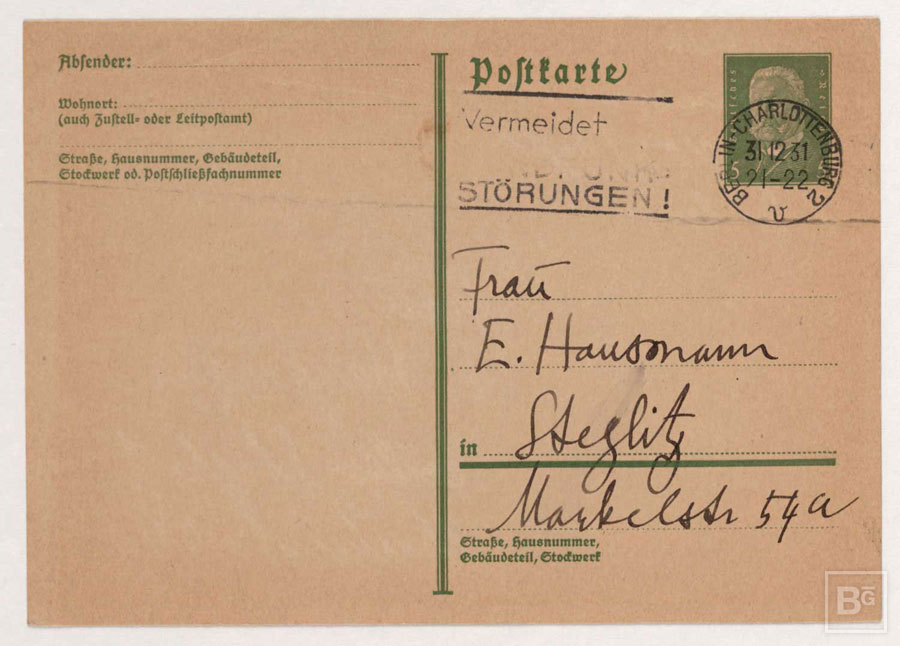 Absender:
Wohnort:
(auch Zustell- oder Leitpostamt)
Straße, Hausnummer, Gebäudeteil,
Stockwerk od. Postschließfachnummer
Postkarte
Vermeidet
STÖRUNGEN!
BERLIN-CHARLOTTENBURG 2
31.12.31
21-22
v
Frau
E. Hausmann
in Steglitz
Markelstr 54a
Straße, Hausnummer,
Gebäudeteil, Stockwerk
BG